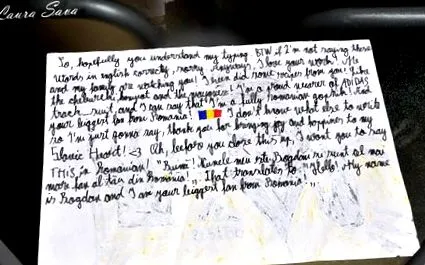 Laura Sava
So, hopefully you understand my typing BTW if I'm not saying these
words in english correctly, sorry. Anyways, I love your work! Me
and my family are watching you! I even did some recipes from you! Like
the and the I'm a proud wearer of ADIDAS
track suit, and I can say that I'm a fully romanian gopnik! And
your biggest fan from Romania! I don't know what else to write
so I'm just gonna say, thank you for bringing joy and happines to my
Slavic Heart! <3 Oh, before you close this up, I want you to say
THIS in Romanian! "Bună! Numele meu este Bogdan si sunt cel mai
mare fan al tău din România". That translates to: "Hello! My name
is Bogdan and I am your biggest fan from Romania"...